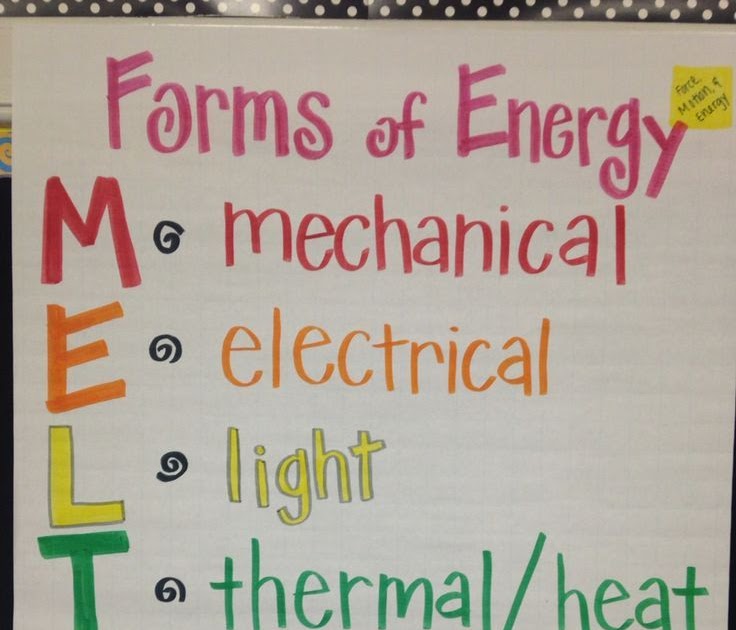 Forms of Energy
Force,
Motion, &
Energy
M mechanical
E electrical
L light
T thermal/heat